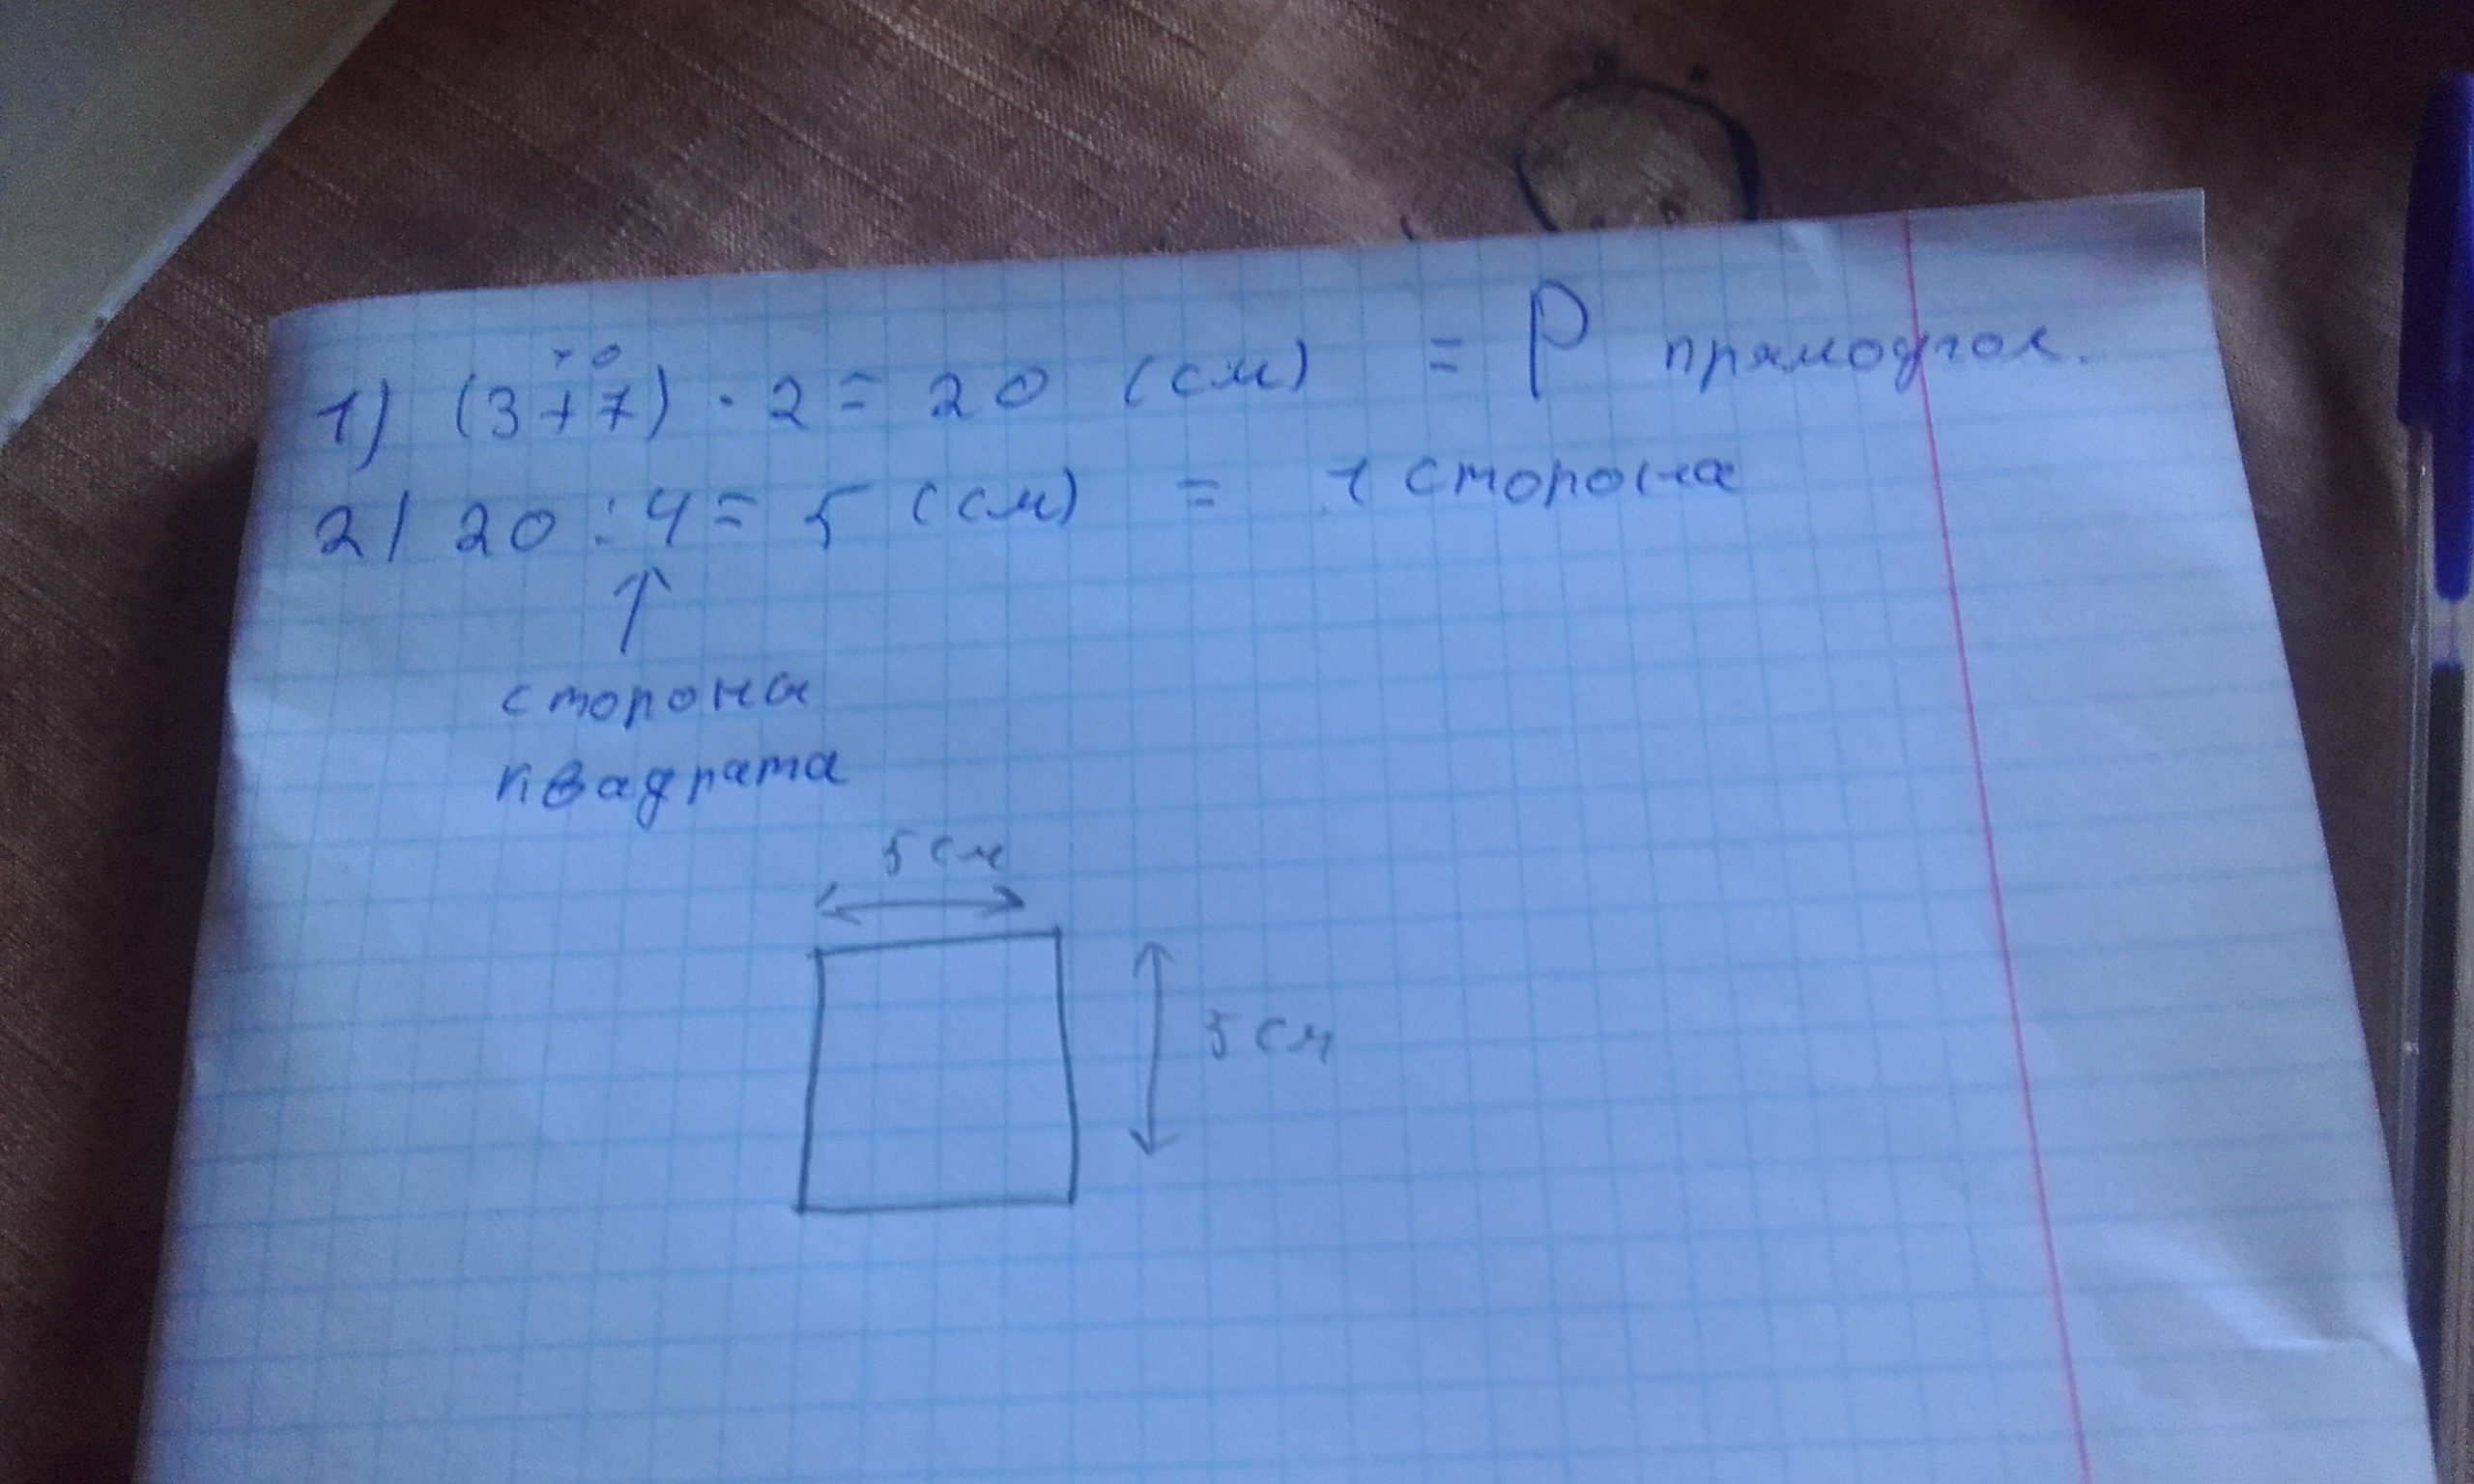 10
1) (3+7) · 2 = 20 (см) = P прямоугол.
2) 20 : 4 = 5 (см) = 1 сторона
сторона
квадрата
5 см
5 см